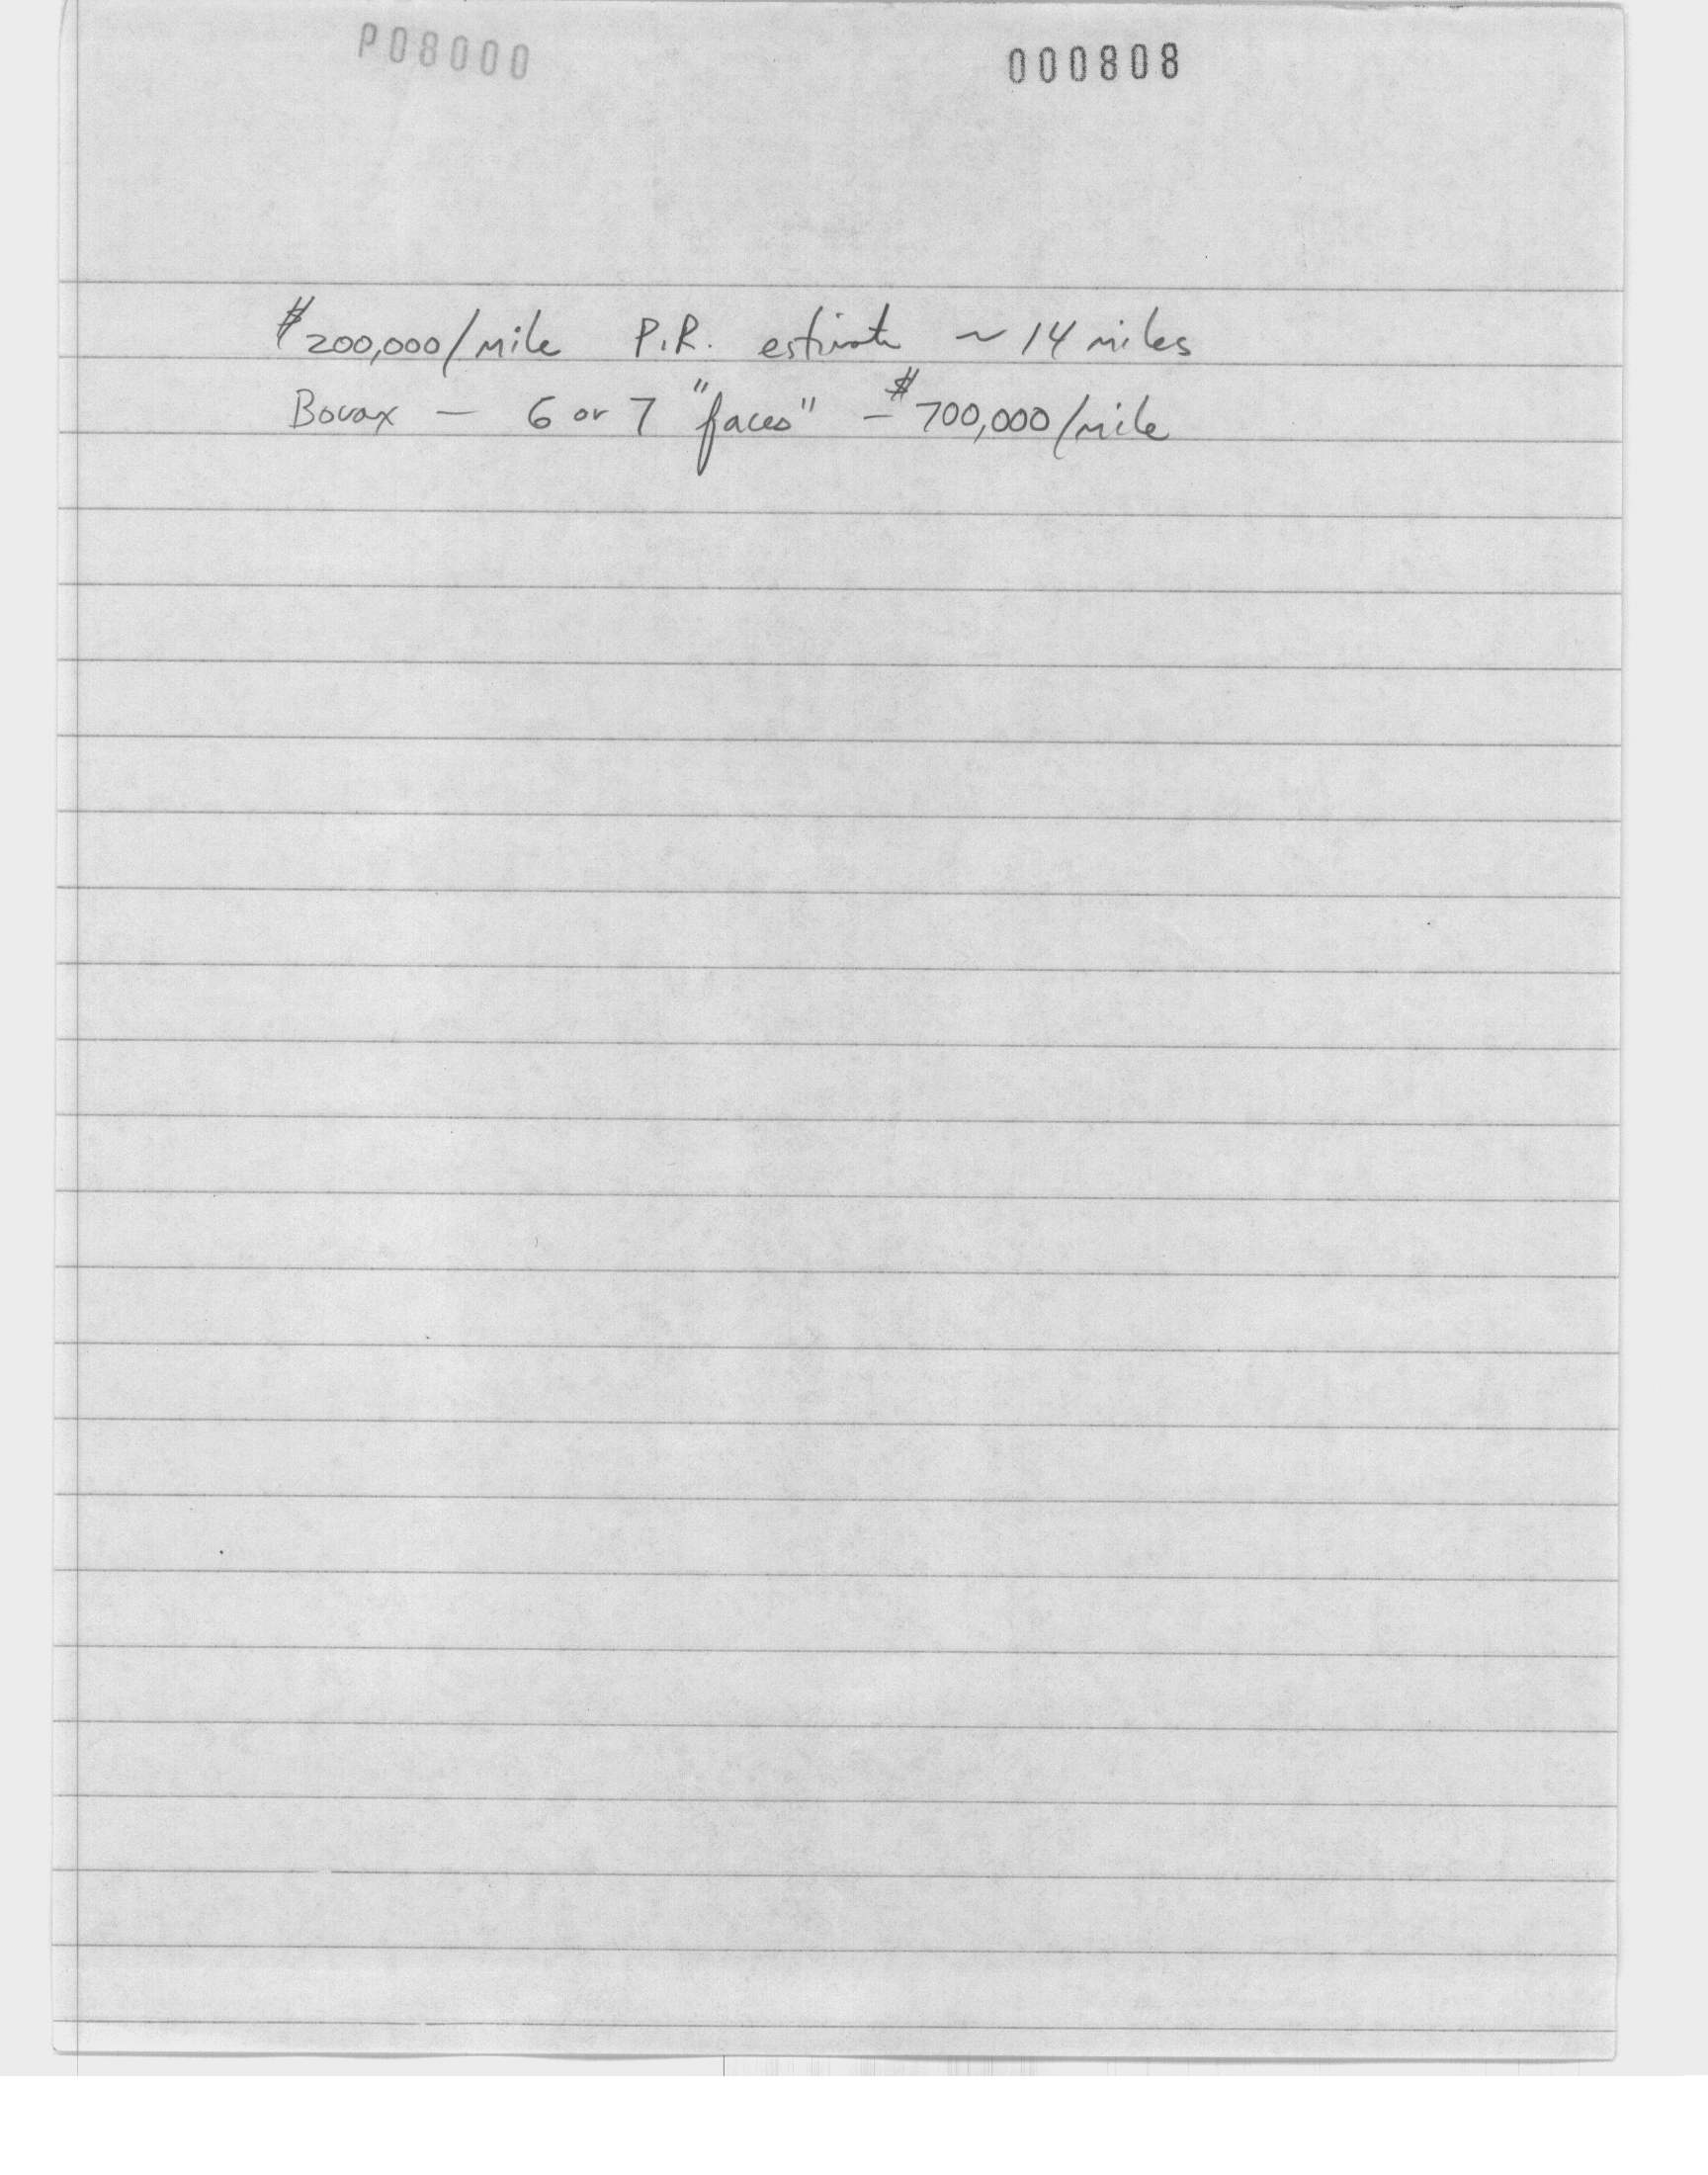 P08000 000808
$200,000/mile P.R. estimate ~ 14 miles
Borax — 6 or 7 "faces" - $700,000/mile